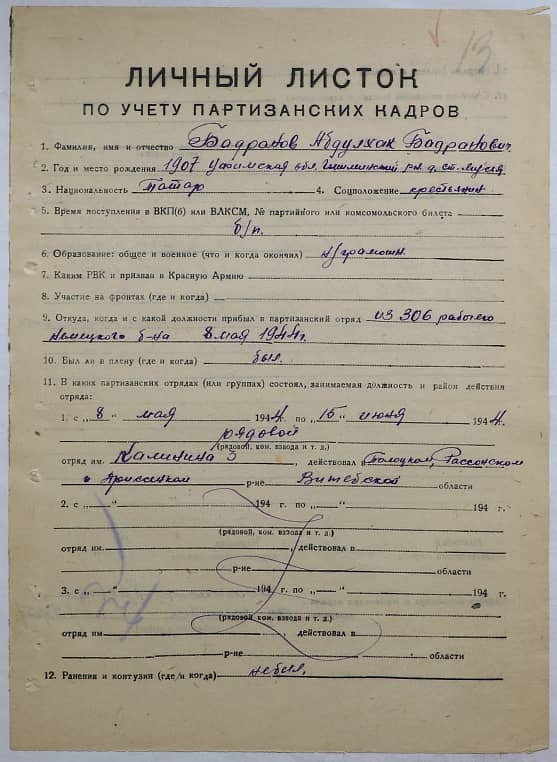 13
ЛИЧНЫЙ ЛИСТОК
ПО УЧЕТУ ПАРТИЗАНСКИХ КАДРОВ
1. Фамилия, имя и отчество Бадранов Абдулхак Бадранович
2. Год и место рождения 1907 Уфимская обл.
3. Национальность Татар 4. Соцположение крестьянин
5. Время поступления в ВКП(б) или ВЛКСМ, № партийного или комсомольского билета
б/п.
6. Образование: общее и военное (что и когда окончил) м/грамотн.
7. Каким РВК и призван в Красную Армию
8. Участие на фронтах (где и когда)
9. Откуда, когда и с какой должности прибыл в партизанский отряд из 306 рабочего
немецкого б-на 8 мая 1944 г.
10. Был ли в плену (где и когда) был.
11. В каких партизанских отрядах (или группах) состоял, занимаемая должность и район действия
отряда:
1. с „8“ мая 1944 г. по „15“ июня 1944 г.
рядовой
(рядовой, ком. взвода и т. д.)
отряд им. Калинина 3, действовал в Полоцком, Россонском
и Дриссенком р-не Витебской области
2. с „—“ 194 г. по „—“ 194 г.
(рядовой, ком. взвода и т. д.)
отряд им. , действовал в
р-не области
3. с „—“ 194 г. по „—“ 194 г.
(рядовой, ком. взвода и т. д.)
отряд им. , действовал в
р-не области
12. Ранения и контузии (где и когда) не был.